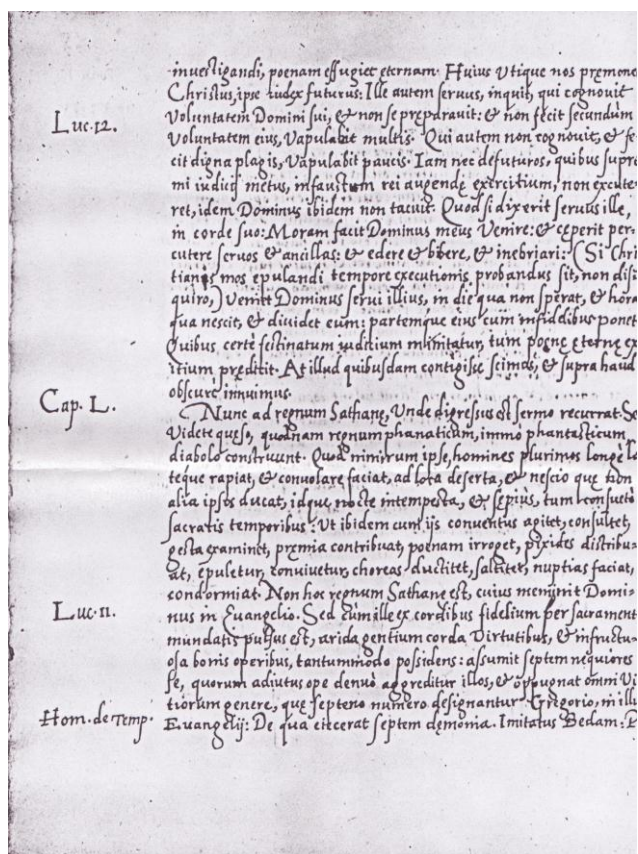 inuestigandi, poenam effugiet eternam. Huius Utique nos premone
Christus, ipse iudex futurus: Ille autem seruus, inquit, qui cognouit
Luc. 12.
voluntatem Domini sui, & non se preparauit: & non fecit secundum
voluntatem eius, Vapulabit multis. Qui autem non cognouit, & fe
cit digna plagis, Vapulabit paucis. Iam nec defuturos, quibus supre
mi iudicij metus, infaustum rei augende exercitium, non excute
ret, idem Dominus ibidem non tacuit. Quod si dixerit seruus ille,
in corde suo: Moram facit Dominus meus Venire: & ceperit per-
cutere seruos & ancillas: & edere & bibere, & inebriari: (Si Chri
tianis mos epulandi tempore executionis probandus sit, non disi
quiro,) veniet Dominus serui illius, in die qua non sperat, & hora
qua nescit, & diuidet eum: partemque eius cum infidelibus ponet
Quibus certè festinatum iuditium minitatur, tum poene eterne ex
itium predicit. At illud quibusdam contigisse scimus, & supra haud
obscure innuimus.
Cap. L.
Nunc ad regnum Sathane, Unde digressus est sermo recurrat. Se
Videte queso, quodnam regnum phanaticum, immò phantasticum
diabolo construunt. Quod nimirum ipse, homines plurimos longè la
teque rapiat, & conuolare faciat, ad loca deserta, & nescio que non
alia ipsos ducat, idque nocte intempesta, & sepius, tum consueto
sacratis temporibus: Ut ibidem cum ijs conuentus agitet, consultet,
gesta examinet, premia contribuat, poenam irroget, pixides distribu-
at, epuletur, conuiuetur, choreas ductitet, saltitet, nuptias faciat,
condormiat. Non hoc regnum Sathane est, cuius meminit Domi-
Luc. 11.
nus in Euangelio. Sed cum ille ex cordibus fidelium per sacrament
mundatis pulsus est, arida gentium corda Virtutibus, & infructu-
osa bonis operibus, tantummodo possidens: assumit septem nequiores
se, quorum adiutus ope denuo aggreditur illos, & oppugnat omni Vi
tiorum genere, que septeno numero designantur. Gregorio, in illu
Hom. de Temp.
Euangelij: De qua eiecerat septem demonia. Imitatus Bedam: P